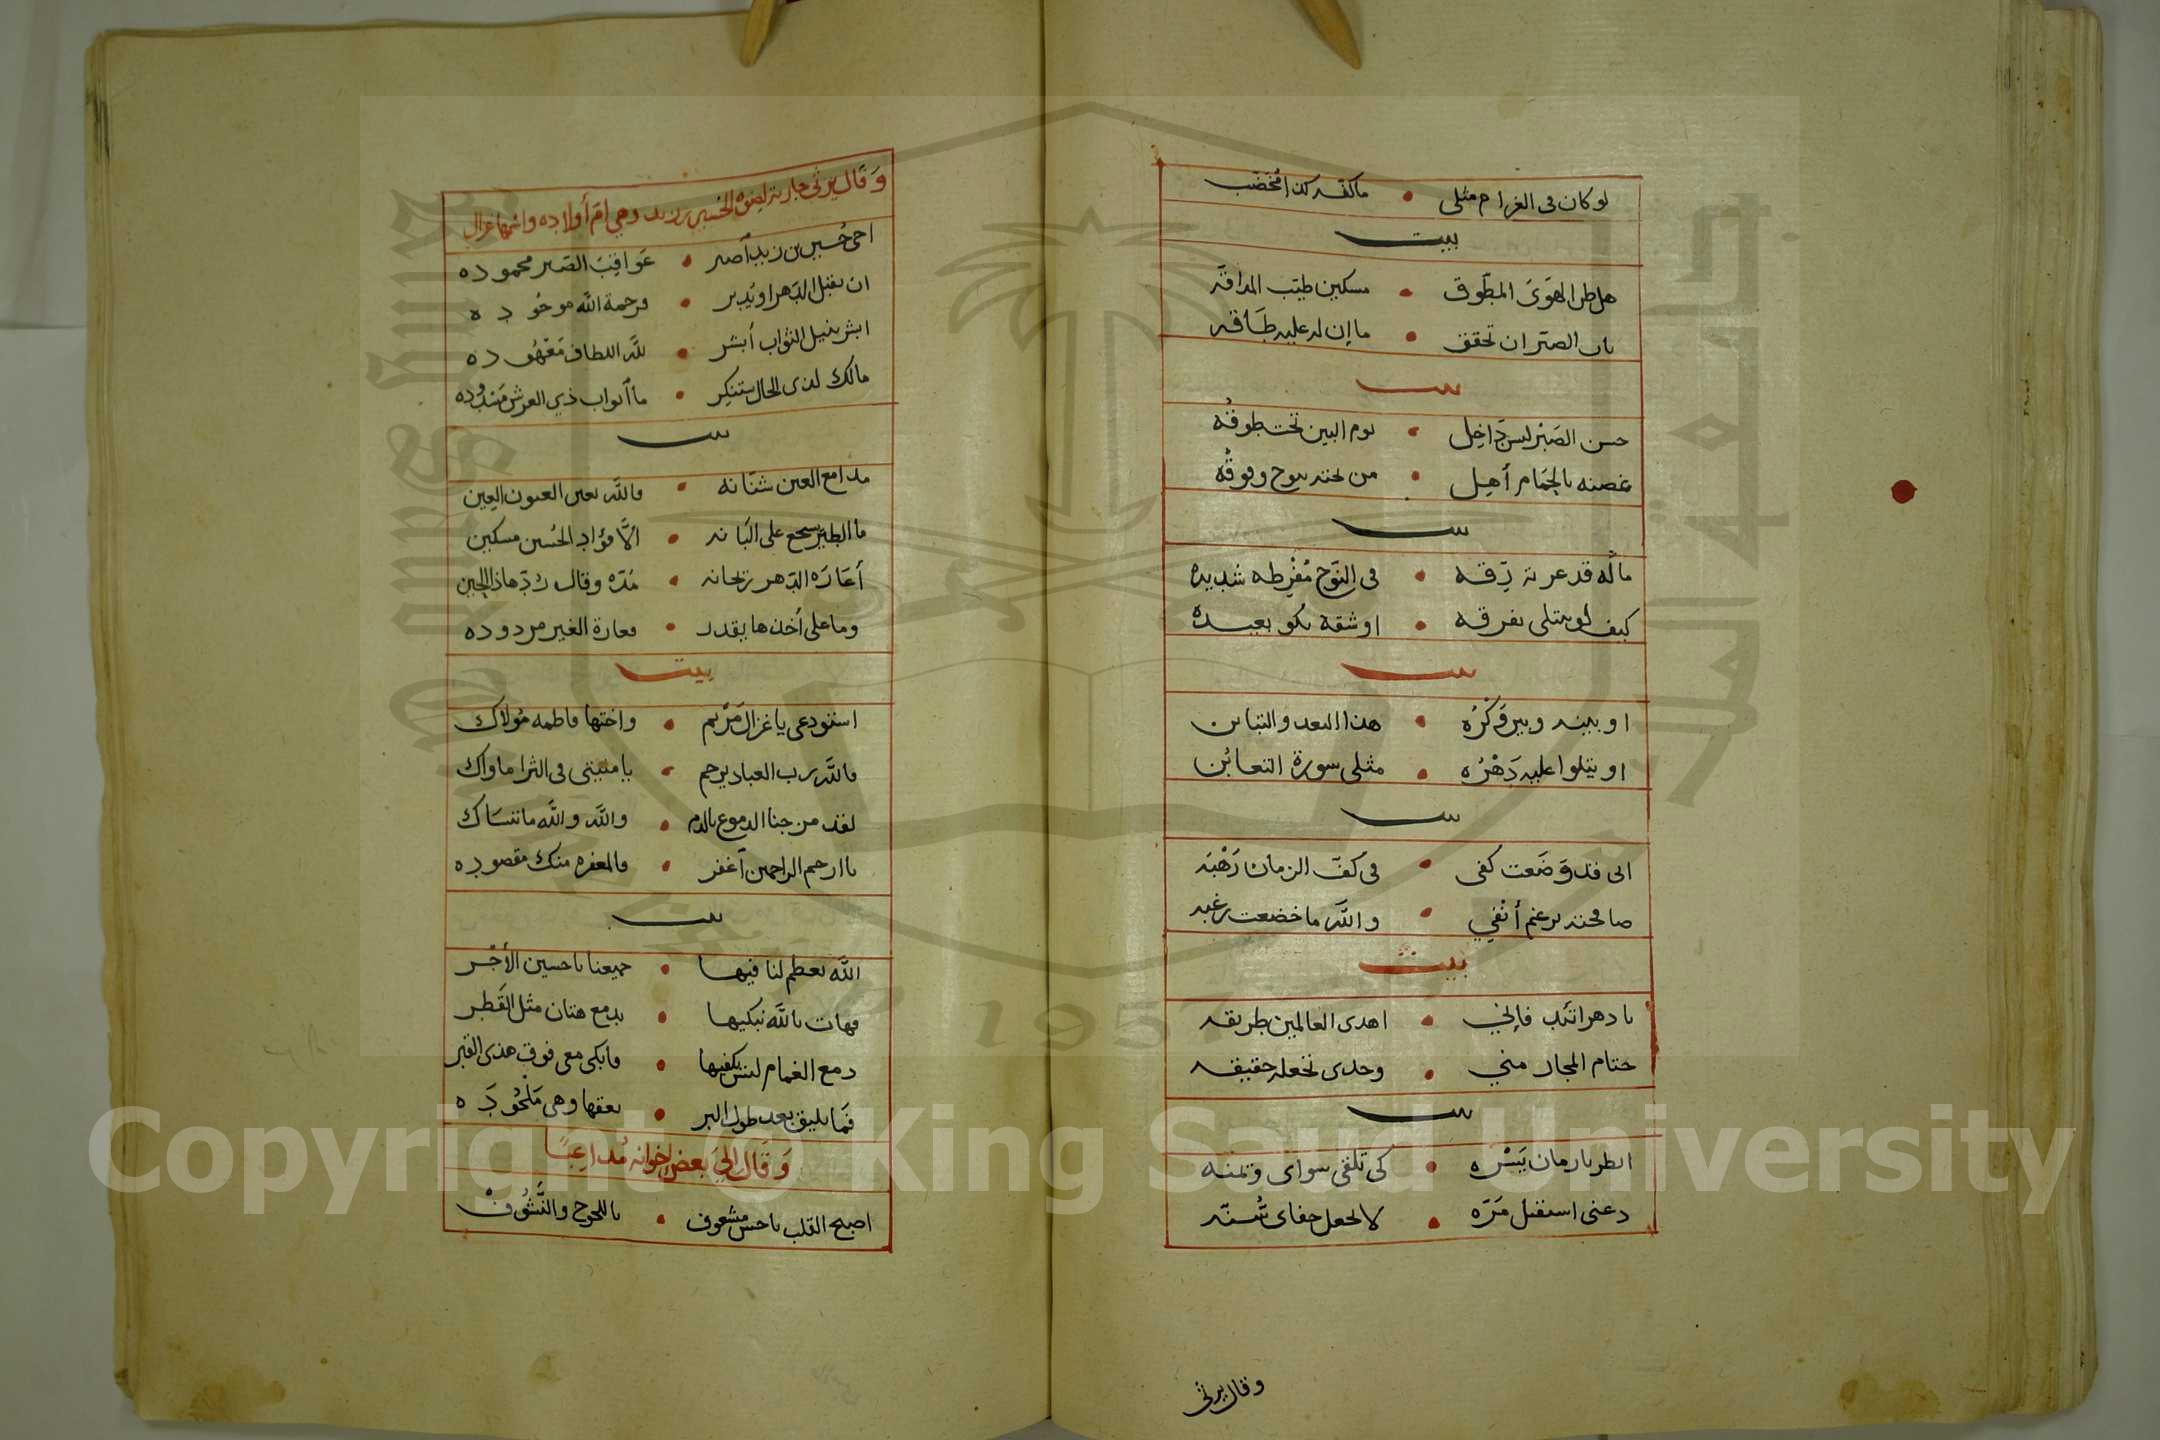 لو كان في الغرام مثلي • ما كفه كذا مخضب
بيت
هل طن الهوى المطوق • مسكين طيب المذاقه
باب الصبر ان تحقق • ما إن له عليه طاقه
بيت
حسن الصبر ليس داخل • يوم البين تحت طوقه
غصنه بالحمام أهل • من تحته ينوح وفوقه
بيت
ما له قد عرته رقه • في النوح مفرطه شديده
كيف لو يبتلى بفرقه • او شقه تكون بعيده
بيت
او بينه وبين وكره • هذا البعد والتباين
او يتلوا عليه دهره • مثلي سورة التغابن
بيت
اني قد وضعت كفي • في كف الزمان رهبه
صافحته برغم أنفي • والله ما خضعت رغبه
بيت
يا دهر اتئد فإني • اهدى العالمين طريقه
حتام المجاز مني • وحدي تجعله حقيقه
بيت
انظر يا زمان يسره • كي تلقى سواي
دعني استقبل مره • لا تجعل جفاي سنه
وقال يرثي
وقال يرثي جارية لصنوه الحسين بن زيد وهي ام أولاده واسمها غزال
اخي حسين بن زيد اصبر • عواقب الصبر محموده
ان يقبل الدهر او يدبر • فرحمة الله موجوده
ابشر بنيل الثواب أبشر • لله الطاف معهوده
مالك لذي الحال تستنكر • ما أبواب ذي العرش مسدوده
بيت
مدامع العين شتانه • فالله يعين العيون العين
ما الطير يسجع على البانه • ألا فؤاد الحسين مسكين
أعاره الدهر ريحانه • مده وقال رد هاذا الحين
وما على أخذها يقدر • فعارة الغير مردوده
بيت
استودعي يا غزال مريم • واختها فاطمه مولاك
فالله رب العباد يرحم • يا منيتي في الثرا ماواك
لقد مزجنا الدموع بالدم • والله والله ما ننساك
يا ارحم الراحمين اغفر • فالمغفره منك مقصوده
بيت
الله يعظم لنا فيها • جميعنا يا حسين الأجر
فهات بالله نبكيها • بدمع هتان مثل القطر
دمع الغمام ليس يكفيها • فابكي معي فوق هذي القبر
فما يليق بعد طول البر • نعقها وهي ملحوده
وقال الى بعض اخوانه مداعبا
اصبح القلب يا حسن مشعوف • باللحوح والنشوف